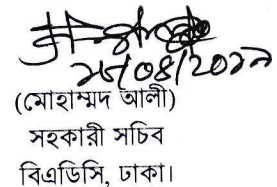 ২৮/০৪/২০১৯
(মোহাম্মদ আলী)
সহকারী সচিব
বিএডিসি, ঢাকা।